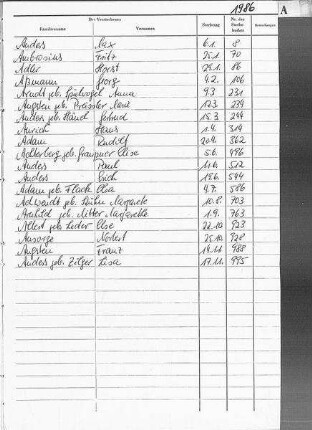 1986 A
Des Verstorbenen
Familienname Vornamen Sterbetag Nr. des Sterbebuches Bemerkungen
Anders Max 6.1. 8
Ambrosius Fritz 25.1. 70
Adler Horst 25.1. 86
Aßmann Georg 4.2. 106
Arndt geb. Anna 9.3. 231
Augsten geb. Preissler 12.3. 239
Anders geb. Händl Gertrud 15.3. 244
Aurich Hans 1.4. 314
Adam Rudolf 20.4. 362
Adlerberg geb. Graupner Else 5.6. 496
Anders Paul 11.6. 512
Anders Erich 19.6. 544
Adam geb. Flack Elsa 4.7. 586
geb. Margarete 10.8. 703
geb. Ritter Margarethe 1.9. 763
Albert geb. Luder Else 22.10. 923
Ansorge Norbert 25.10. 928
Augsten Franz 14.11. 988
Anders geb. Zitzer Lisa 17.11. 995